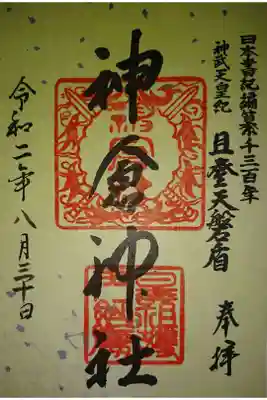 日本書紀編纂千三百年
神武天皇紀
且登天磐盾
奉拝
神倉神社
令和二年八月三十日